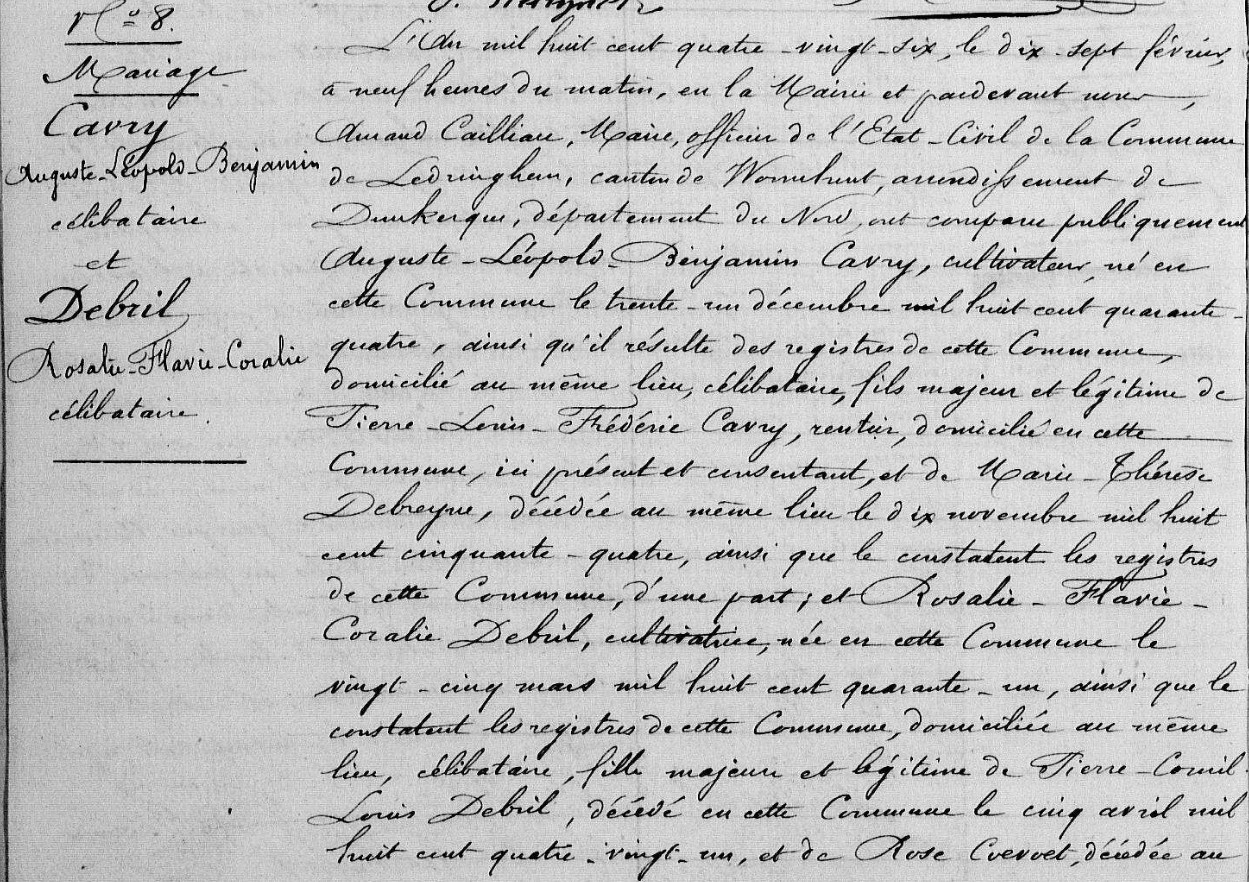 N° 8.
Mariage
Cavry
Auguste-Léopold-Benjamin
célibataire
et
Debril
Rosalie-Flavie-Coralie
célibataire
L'An mil huit cent quatre-vingt-six, le dix-sept février,
à neuf heures du matin, en la Mairie et pardevant nous,
Amand Cailliau, Maire, officier de l'Etat-Civil de la Commune
de Ledringhem, canton de Wormhout, arrondissement de
Dunkerque, département du Nord, ont comparu publiquement
Auguste-Léopold-Benjamin Cavry, cultivateur, né en
cette Commune le trente-un décembre mil huit cent quarante-
quatre, ainsi qu'il résulte des registres de cette Commune,
domicilié au même lieu, célibataire, fils majeur et légitime de
Pierre-Louis-Frédéric Cavry, rentier, domicilié en cette
Commune, ici présent et consentant, et de Marie-Thérèse
Debreyne, décédée au même lieu le dix novembre mil huit
cent cinquante-quatre, ainsi que le constatent les registres
de cette Commune, d'une part; et Rosalie-Flavie-
Coralie Debril, cultivatrice, née en cette Commune le
vingt-cinq mars mil huit cent quarante-un, ainsi que le
constatent les registres de cette Commune, domiciliée au même
lieu, célibataire, fille majeure et légitime de Pierre-Cornil-
Louis Debril, décédé en cette Commune le cinq avril mil
huit cent quatre-vingt-un, et de Rose Coevoet, décédée au